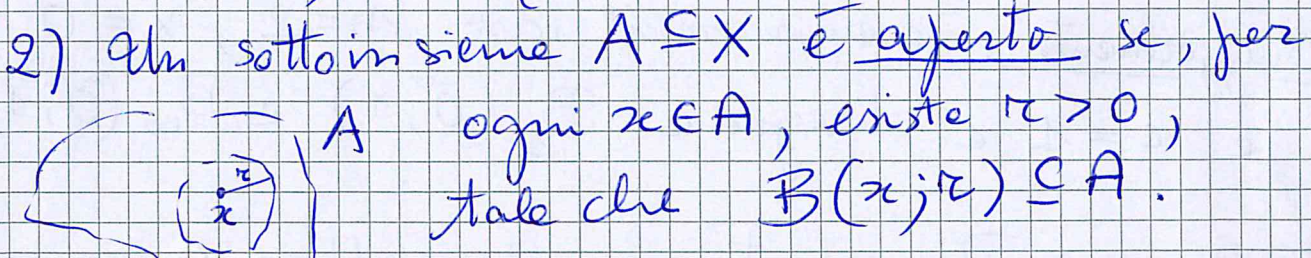 2) Un sottoinsieme A ⊆ X è aperto se, per
A ogni x ∈ A, esiste r > 0,
r
x tale che B(x; r) ⊆ A.